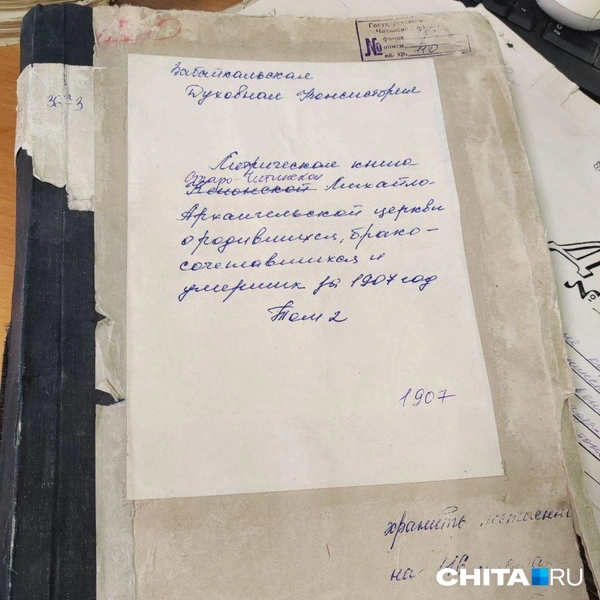 Государствен
Читинской обл.
№ фонда
описи
ед. хр. 110
Забайкальская
Духовная Консистория
Метрическая книга
Старо-Читинской
Кенонской Михайло-
Архангельской церкви
о родившихся, брако-
сочетавшихся и
умерших за 1907 год
Том 2
1907
хранить
на 116
CHITA.RU